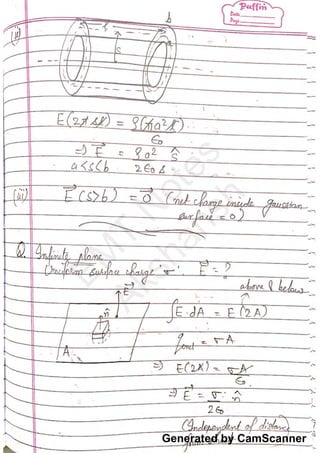 Puffin
Date
Page
(ii)
b
a
s
E(2πsl) = ρ(πa²l)
ε₀
⇒ E⃗ = ρa² ŝ
a<s<b 2ε₀s
(iii) E⃗(s>b) = 0⃗ (net charge inside gaussian
surface = 0)
Q. Infinite plane
Uniform surface charge 'σ' E⃗ = ?
above & below
E⃗
n̂
∫E⃗·dA = E(2A)
A
q_encl = σA
⇒ E(2A) = σA
ε₀
⇒ E⃗ = σ n̂
2ε₀
(Independent of distance
Generated by CamScanner